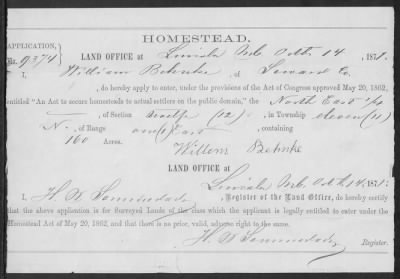 HOMESTEAD.
APPLICATION,
No. 9374
LAND OFFICE at Lincoln Neb Octb. 14, 1871.
I, William Behnke, of Seward Co.
do hereby apply to enter, under the provisions of the Act of Congress approved May 20, 1862,
entitled "An Act to secure homesteads to actual settlers on the public domain," the North East 1/4
of Section twelve (12), in Township eleven (11)
N., of Range one (1) East, containing
160 Acres.
Willem Behnke
LAND OFFICE at
Lincoln Neb. Octb. 14, 1871.
I, H. W., Register of the Land Office, do hereby certify
that the above application is for Surveyed Lands of the class which the applicant is legally entitled to enter under the
Homestead Act of May 20, 1862, and that there is no prior, valid, adverse right to the same.
H. W.
Register.